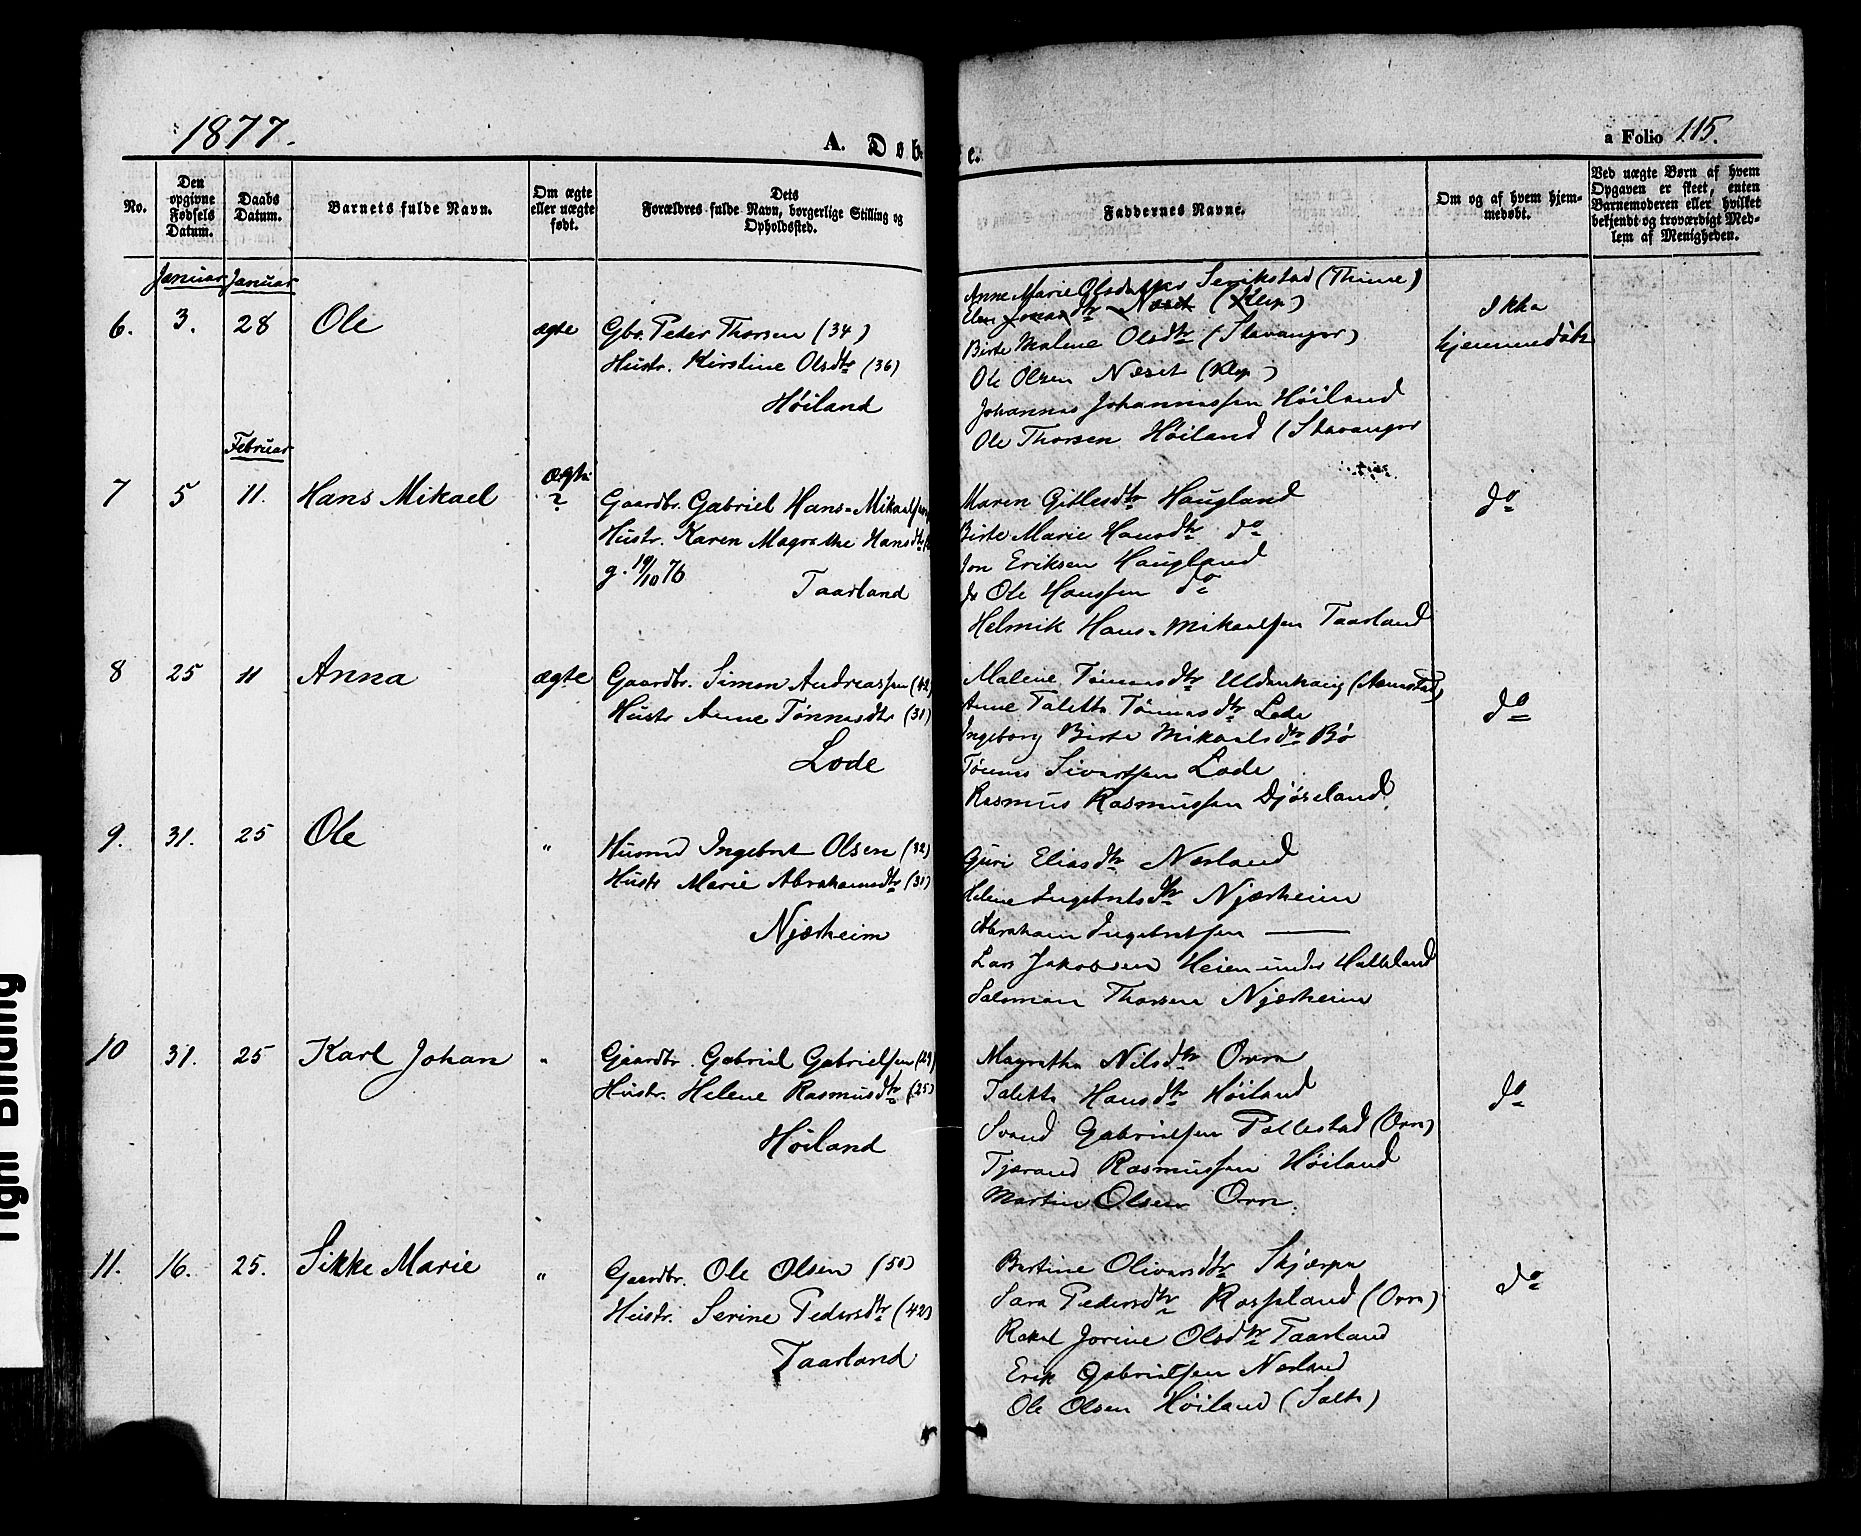 1877.
A. Døb
e.
a Folio 115.
No.
Den opgivne Fødsels Datum.
Daabs Datum.
Barnets fulde Navn.
Om ægte eller uægte født.
Dets Forældres fulde Navn, borgerlige Stilling og Opholdssted.
Faddernes Navne.
Om og af hvem hjemmedøbt.
Ved uægte Børn af hvem Opgaven er skeet, enten Barnemoderen eller hvilket bekjendt og troværdigt Medlem af Menigheden.
Januar Januar
6. 3. 28 Ole ægte
Gbr. Peder Thorsen (34)
Hustr. Kirstine Olsdtr (36)
Høiland
Anne Marie Olsdatter Serikstad (Thime)
Elen Jonasdtr Næset (Klep)
Birte Malene Olsdtr (Stavanger)
Ole Olsen Næset (Klep)
Johannes Johannessen Høiland
Ole Thorsen Høiland (Stavanger
Ikke
hjemmedøbt
Februar
7 5 11. Hans Mikael ægte
?
Gaardbr. Gabriel Hans-Mikaelsen
Hustr. Karen Magrethe Hansdtr
g. 19/10 76
Taarland
Maren Gitlesdtr Haugland
Birte Marie Hansdtr do
Jon Eriksen Haugland
Ole Hanssen do
Helmik Hans-Mikaelsen Taarland
do
8 25 11 Anna ægte
Gaardbr. Simon Andreassen (42)
Hustr Anne Tønnesdtr (31)
Lode
Malene Tønnesdtr
Anne Talette Tønnesdtr Lode
Ingeborg Birte Mikaelsdtr Bø
Tønnes Sivertsen Lode
Rasmus Rasmussen Djøseland.
do
9. 31. 25 Ole "
Husmd Ingebret Olsen (32)
Hustr Marie Abrahamsdtr (31)
Njærheim
Guri Eliasdtr Nærland
Helene Ingebretsdtr Njærheim
Abraham Ingebretsen ——
Lars Jakobsen Heien under Hatteland
Salomon Thorsen Njærheim
10 31. 25 Karl Johan "
Gaardbr. Gabriel Gabrielsen (29)
Hustr. Helene Rasmusdtr (25)
Høiland
Magrethe Nilsdtr Orre
Talette Hansdtr Høiland
Svend Gabrielsen Pollestad (Orre)
Tjærand Rasmussen Høiland
Martin Olsen Orre.
do
11. 16. 25. Sikke Marie "
Gaardbr. Ole Olsen (50)
Hustr. Serine Pedersdtr (42)
Taarland
Bertine Oliversdtr Skjærpe
Sara Pedersdtr Rosseland (Orre)
Rakel Jorine Olsdtr Taarland
Erik Gabrielsen Nærland
Ole Olsen Høiland (Salte)
do
Tight Binding